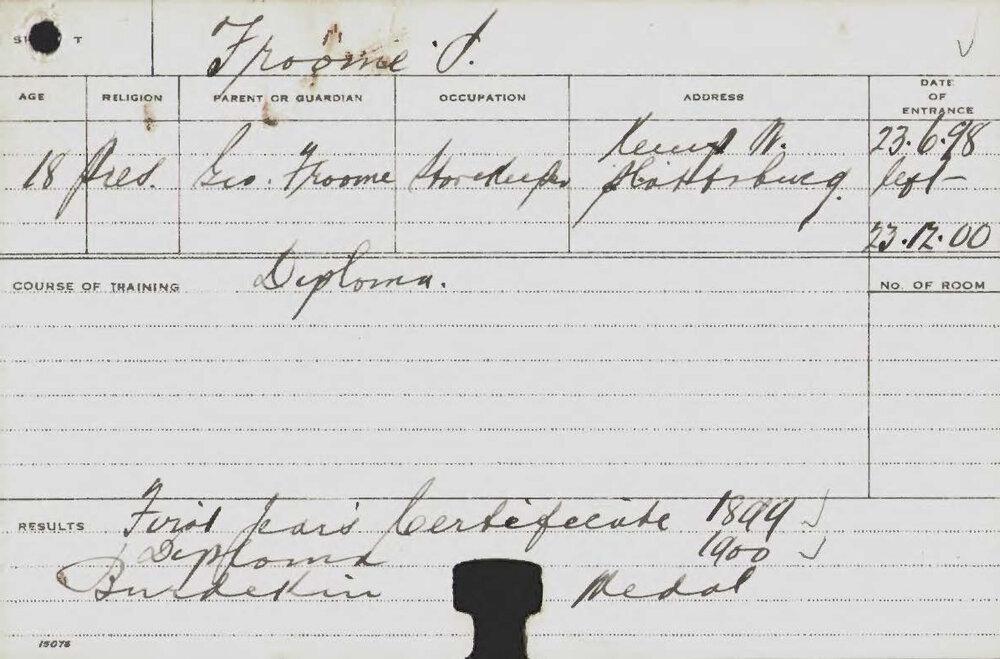 Froome J.
AGE RELIGION PARENT OR GUARDIAN OCCUPATION ADDRESS DATE OF ENTRANCE
18 Pres. Geo. Froome Storekeeper Kemp St. 23.6.98
left
23.12.00
COURSE OF TRAINING Diploma. No. OF ROOM
RESULTS First Year's Certificate 1899
Diploma 1900
Burdekin Medal
15076